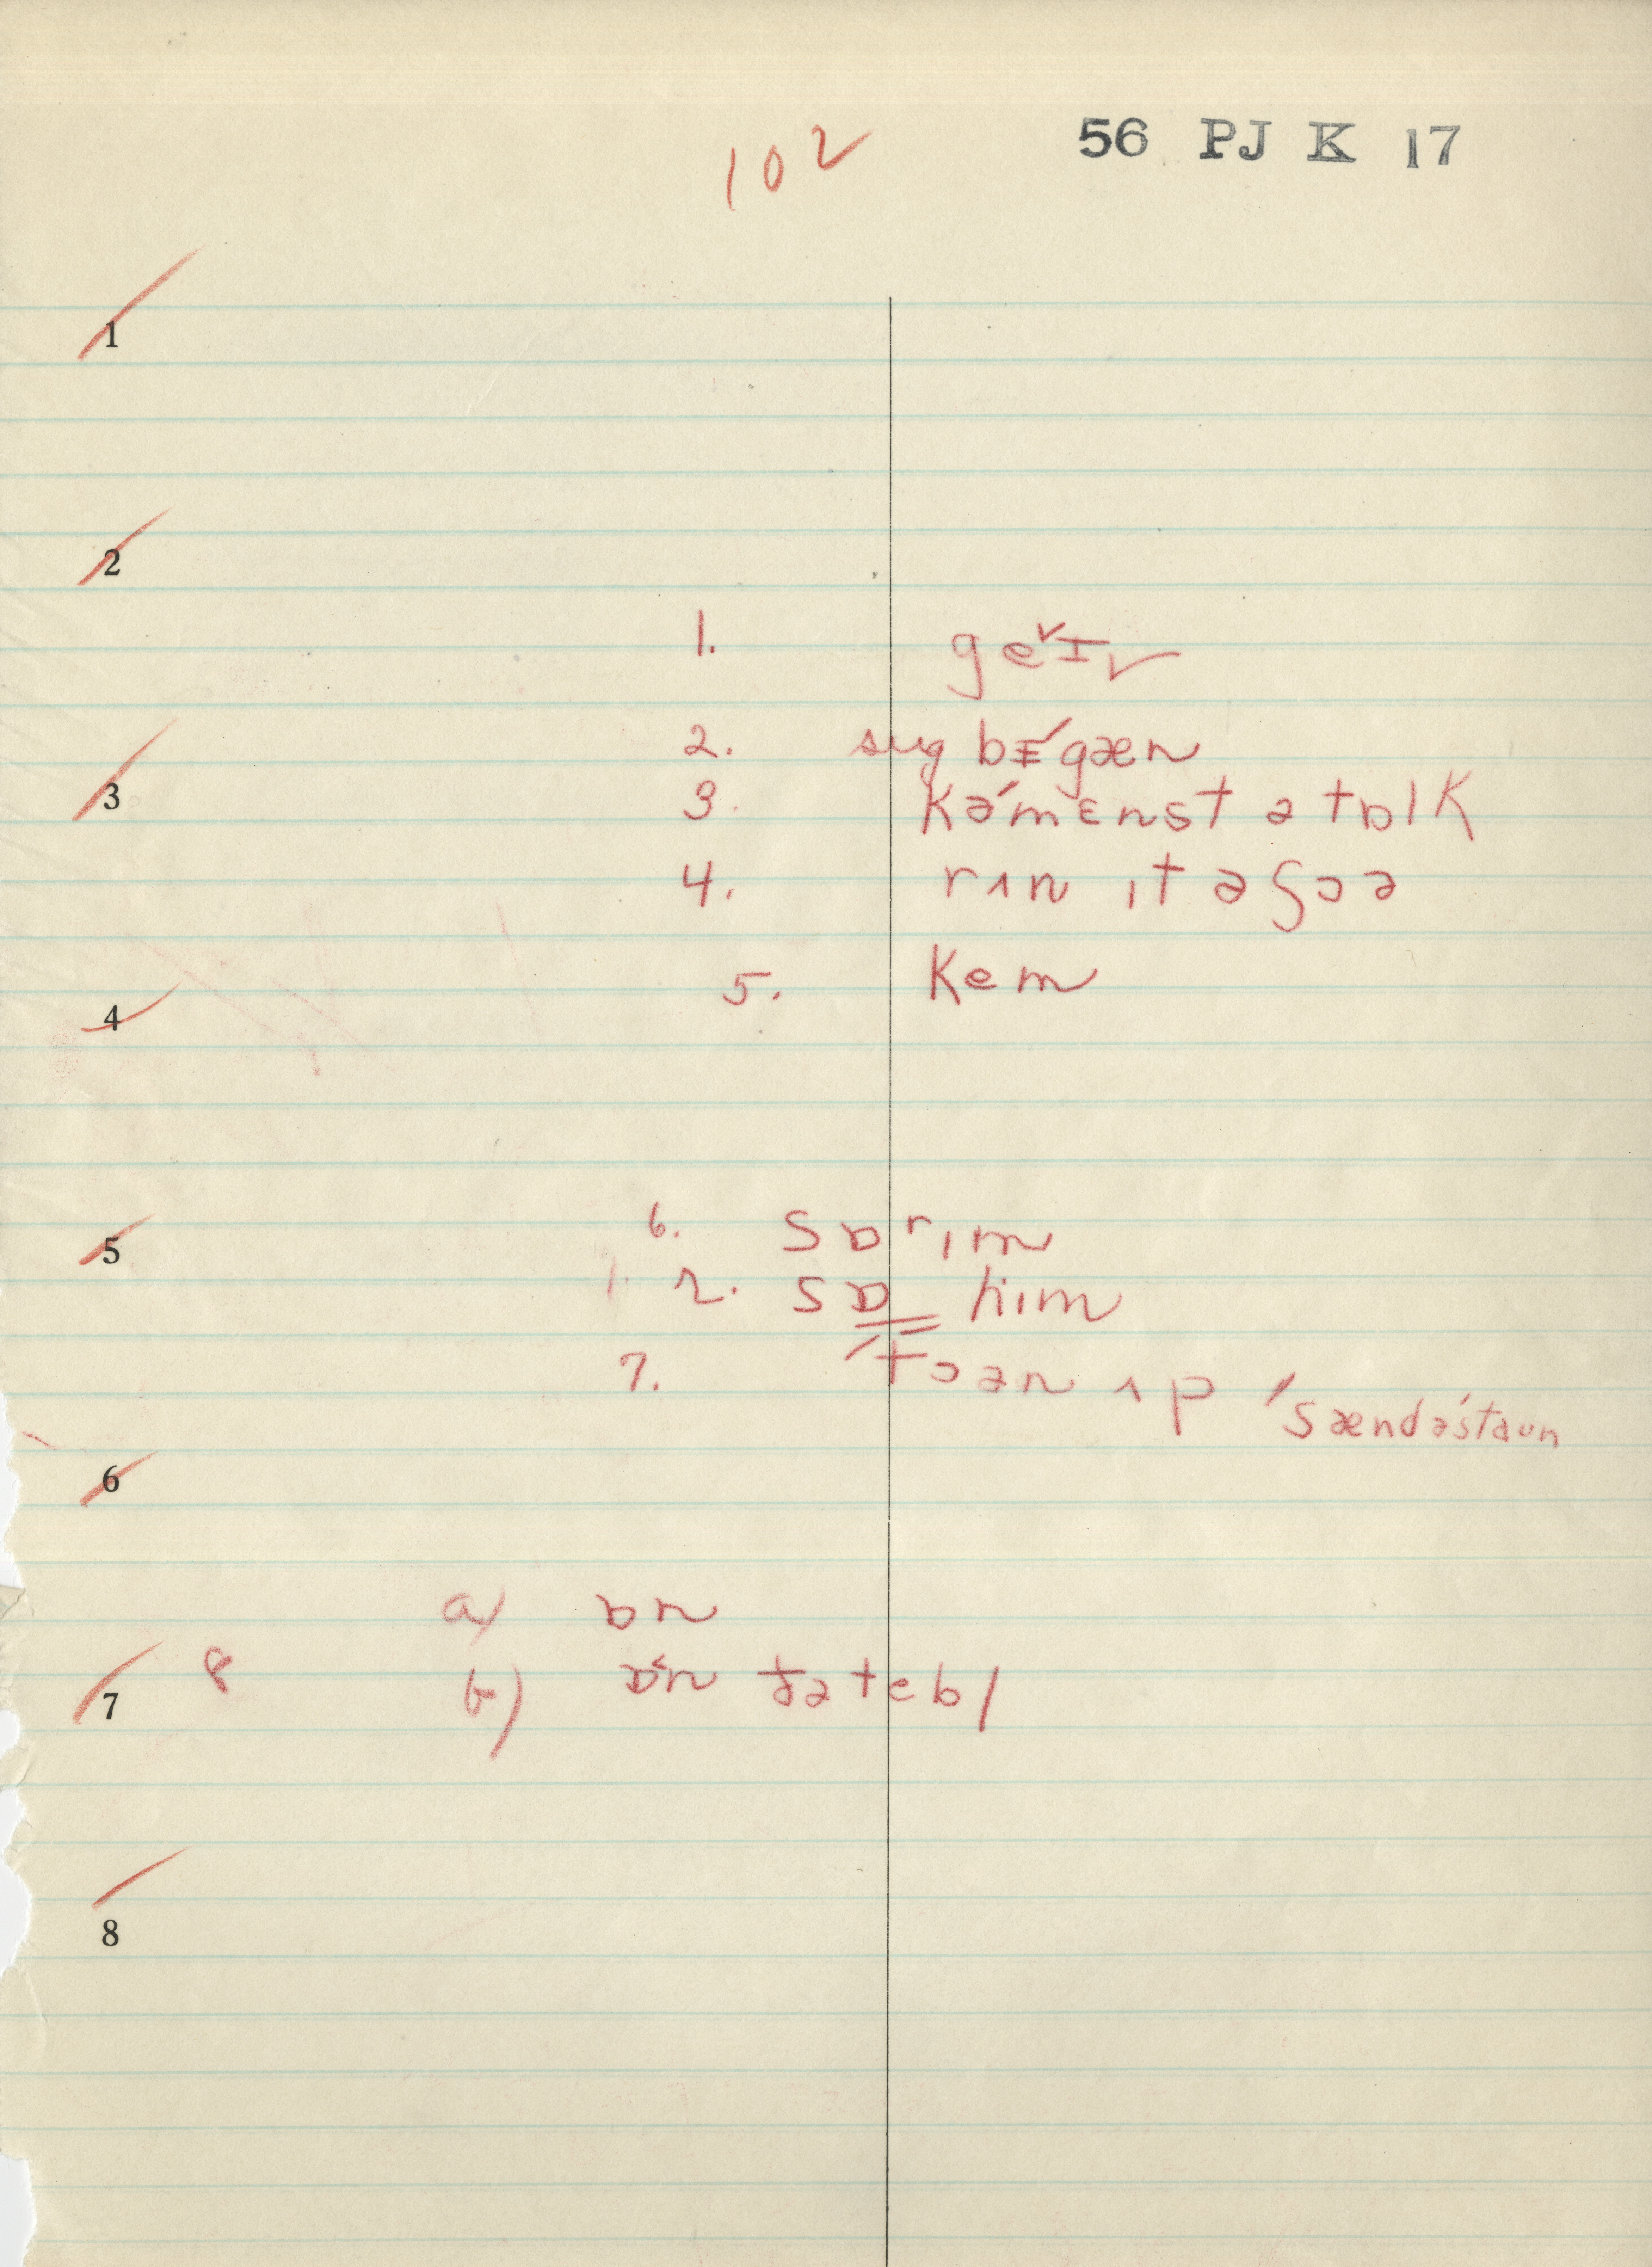 102
56 PJ K 17
1
2
1. geˇɪv
3
2. sug bɪ́gæn
3. kə́mɛnst ə tɒlk
4. rʌn ɪt əʃɔə
4
5. kem
5
6. sɒ rɪm
1. 2. sɒ hɪm
7. 'tɔən ʌp 'sændə́staʊn
6
a) ɒn
7
8 b) ɒ́n ðə tebl
8